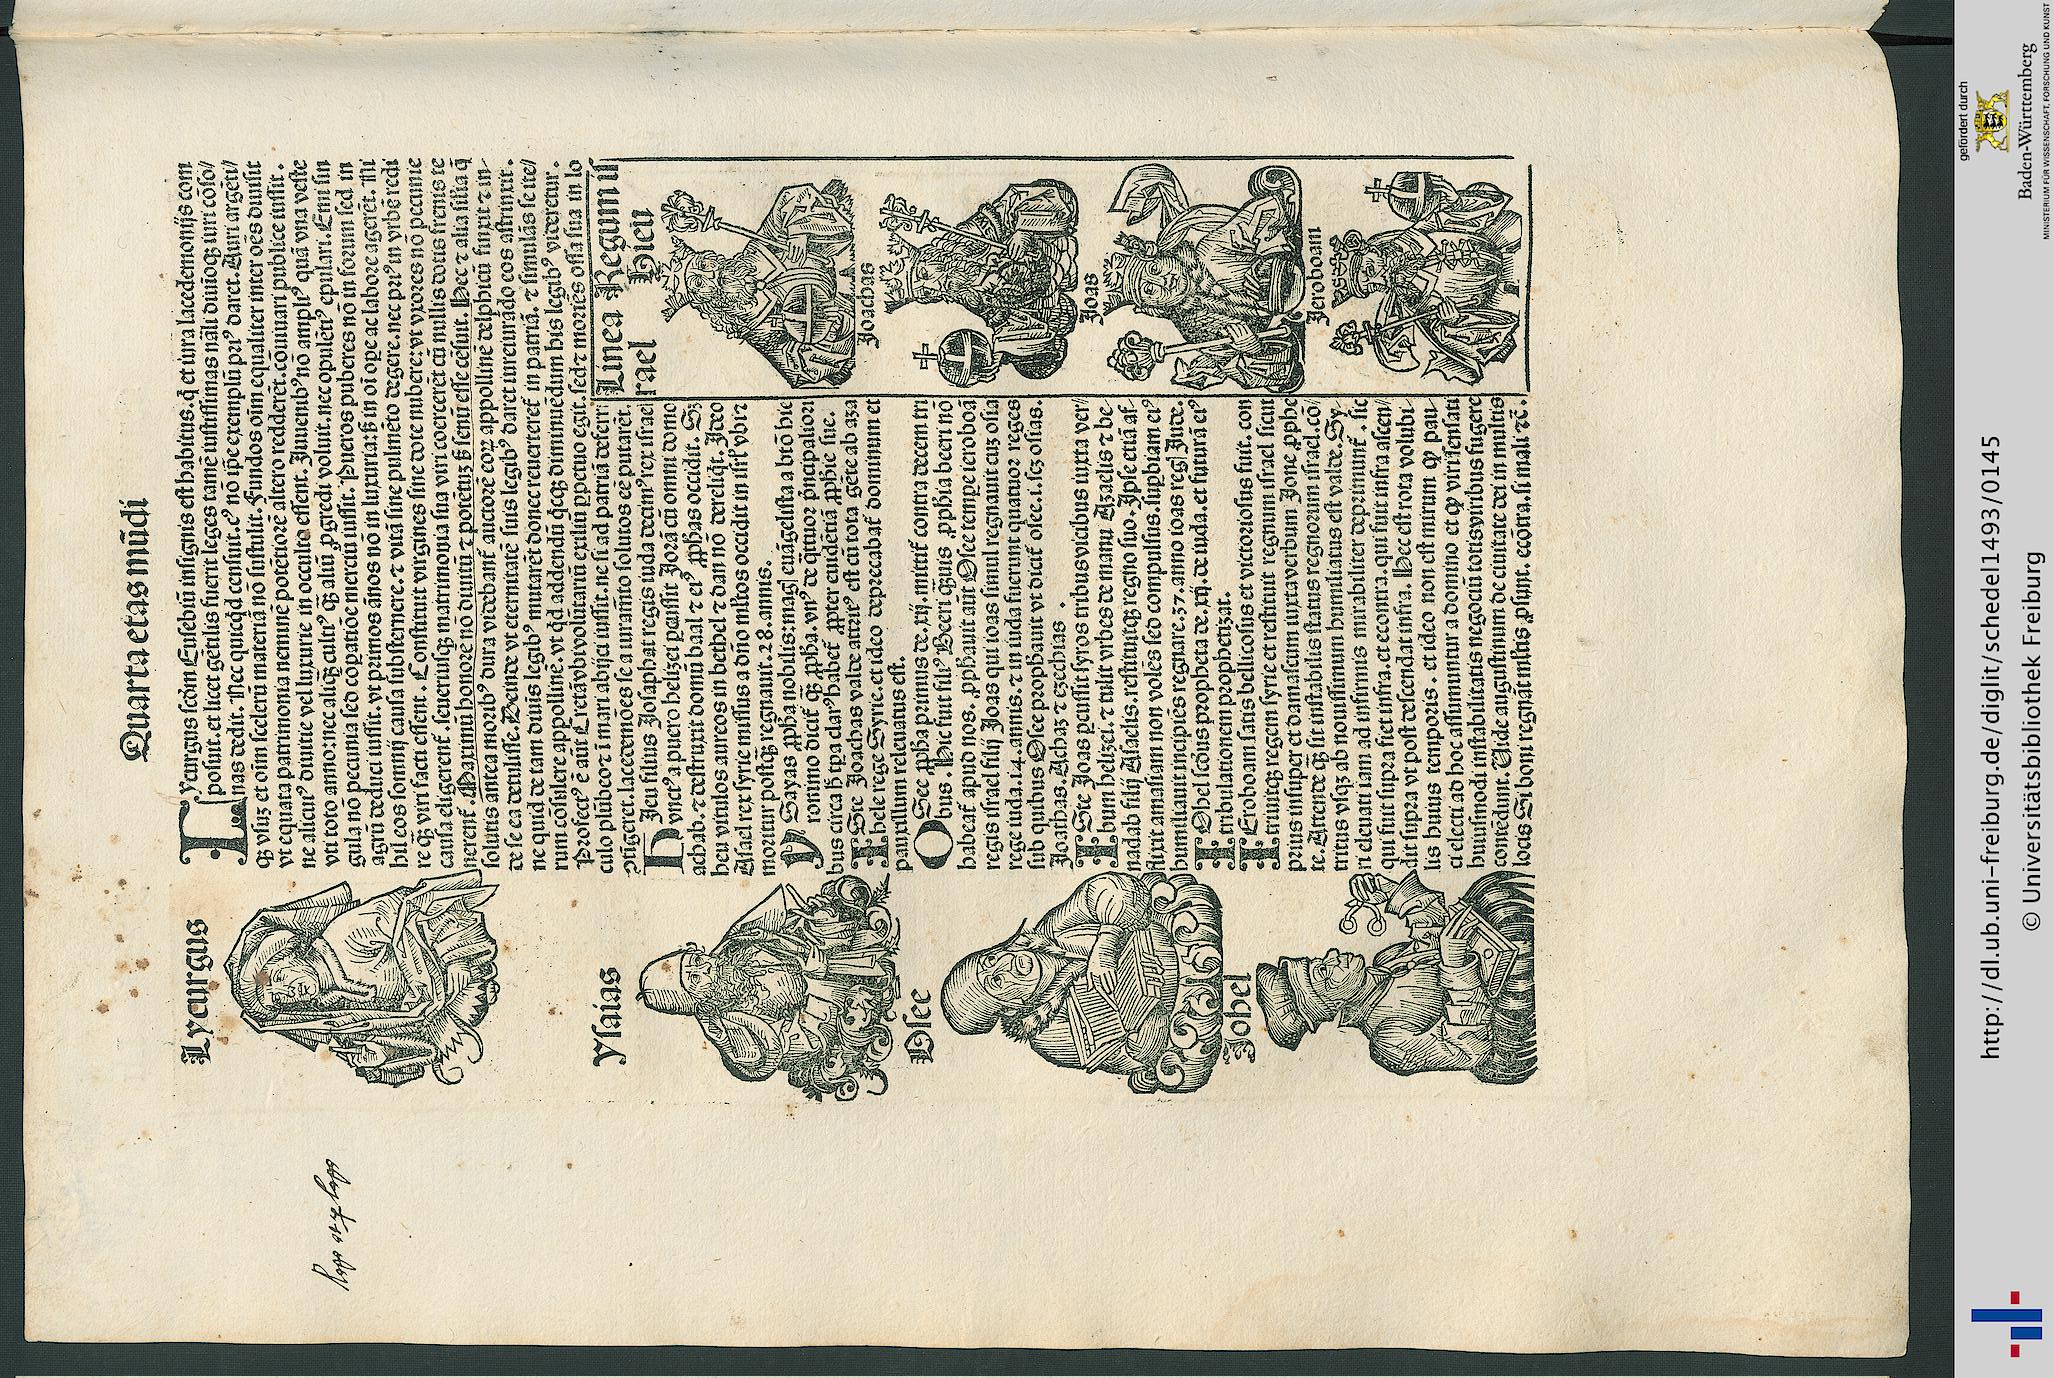 Quarta etas mūdi
Lycurgus
Lycurgus scd̄m Eusebiū insignis est habitus. q̄ et iura lacedemonijs com
posuit. et licet gētilis fuerit leges tamē iustissimas
nas dedit. Iste quicq̄d censuit.
ꝙ vsuꝫ et oīm scelerū materiā nō sustulit. Fundos oīm equaliter inter oēs diuisit
vt equata patrimonia nemine potētiorē altero redderēt. cōuiuari publice iussit.
ne alicuiꝰ diuitie vel luxurie in occulto essent. Iuuenibꝰ nō ampliꝰ quā vna veste
vti toto anno: nec aliq̄ꝫ cultiꝰ ꝙ̄ aliū ꝓgredi voluit. nec opulētiꝰ epulari. Emi sin
gula nō pecunia sed cōpatiōe mercium iussit. Pueros puberes nō in forum sed in
agrū deduci iussit. vt primos ānos nō in luxuria: sꝫ in oī ope ac labore agerēt. Nil
hil eos somnij causa substernere. ⁊ vitā sine pulmēto degere. nec priꝰ in vrbē redi
re ꝙ̄ viri facti essent. Constituit virgines sine dote nubere: vt vxores nō pecunie
causa eligerent. seueriusqꝫ matrimonia sua viri coercerēt cū nullis dotis frenis te
nerent. Maximū honorē nō diuitū ⁊ potētū sꝫ senū esse
solutis antea moribꝰ dura videbant̄ auctorē eorꝫ appollinē delphicū finxit ⁊ in-
de se ea detulisse. Deinde vt eternitatē suis legibꝰ daret iureiurādo eos astrinxit.
ne quid de tam diuis legibꝰ mutarēt donec reuerteret̄ in patriā. ⁊ simulās se ire
rum cōsulere appollinē. vt qd addendū qcqꝫ diminuēdum his legibꝰ videretur.
Profectꝰ ē aūt Cretā vbi voluntariū exiliū ꝑpetuo egit. sed ⁊ moriēs ossa sua in lo
culo plūbeo ⁊ in mari abijci iussit. ne si ad patriā deferri
ꝯtigeret. lacedemoēs se a iuramēto solutos eē putarēt.
Hieu filius Josaphat regis iuda decimꝰ rex israel
vnctꝰ a puero helizei Jorā cū omni domo
achab. ⁊ destruxit domū baal ⁊ eiꝰ ꝓphas occidit. Sꝫ
hieu vitulos aureos in bethel ⁊ dan nō dereliqt. Ideo
Asael rex syrie missus a dn̄o ml̄tos occidit in isrl̄
mortuū postqꝫ regnauit. 28. annis.
Ysaias
Ysayas ꝓpha nobilis: magꝭ euāgelista a btō hie
ronimo dicit̄ ꝙ̄ ꝓpha. vnꝰ de q̄tuor p̄ncipaliori
bus
Iste Joachas valde attritꝰ est cū tota gēte ab aza
hele rege Syrie. et ideo deprecabat̄ dominum et
pauxillum releuatus est.
Osee
Osee ꝓpha primus de .xij. mittit̄ contra decem tri
bus. Hic fuit filiꝰ Beeri
habeat̄ apud nos. ꝓphauit aūt Osee tempe ieroboā
regis israel filij Joas qui ioas simul regnauit cuꝫ osia
rege iuda. 14. annis. ⁊ in iuda fuerunt quatuor reges
sub quibus Osee prophauit vt dicit̄ osee. 1. scꝫ osias.
Joathas. Achaz ⁊ ezechias.
Iste Joas pcussit syros tribus vicibus iuxta ver
bum helizei. ⁊ tulit vrbes de manu Azaelis ⁊ be
nadab filij Asaelis. restituitqꝫ regno suo. Ipse etiā af
flixit amasiam non volēs sed compulsus. supbiam eiꝰ
humiliauit incipiēs regnare. 37. anno ioas regꝭ Jude.
Johel
Johel scd̄us propheta de .xij. de iuda. et futurā eiꝰ
tribulationem prophetizat.
Jeroboam satis bellicosus et victoriosus fuit. con
triuitqꝫ regem syrie et restituit regnum israel sicut
prius insuper et damascum iuxta verbum Jone ꝓphe
te. Attende ꝙ̄ sit instabilis status regnorum israel. cō
tritus vsqꝫ ab nouissimum humiliatus est valde. Sy
ri eleuati iam ad infimis mirabiliter deprimunt̄. sic
qui fuit supra fiet infra. et econtra. qui fuit infra ascen
dit supra vt post descendat infra. Hec est rota volubi
lis huius temporis. et ideo non est mirum ꝙ pau
ci electi ad hoc assumuntur a domino et ꝙ viri sensati
huiusmodi instabilitatis negociū totis viribus fugere
contēdunt. Vide augustinum de ciuitate dei in multis
locis Si boni regnāt ml̄tis ꝓsunt. econtra. si mali ⁊c̄.
Linea Regum Is
rael Hieu
Joachas
Joas
Jeroboam
gefördert durch
Baden-Württemberg
MINISTERIUM FÜR WISSENSCHAFT, FORSCHUNG UND KUNST
http://dl.ub.uni-freiburg.de/diglit/schedel1493/0145
© Universitätsbibliothek Freiburg